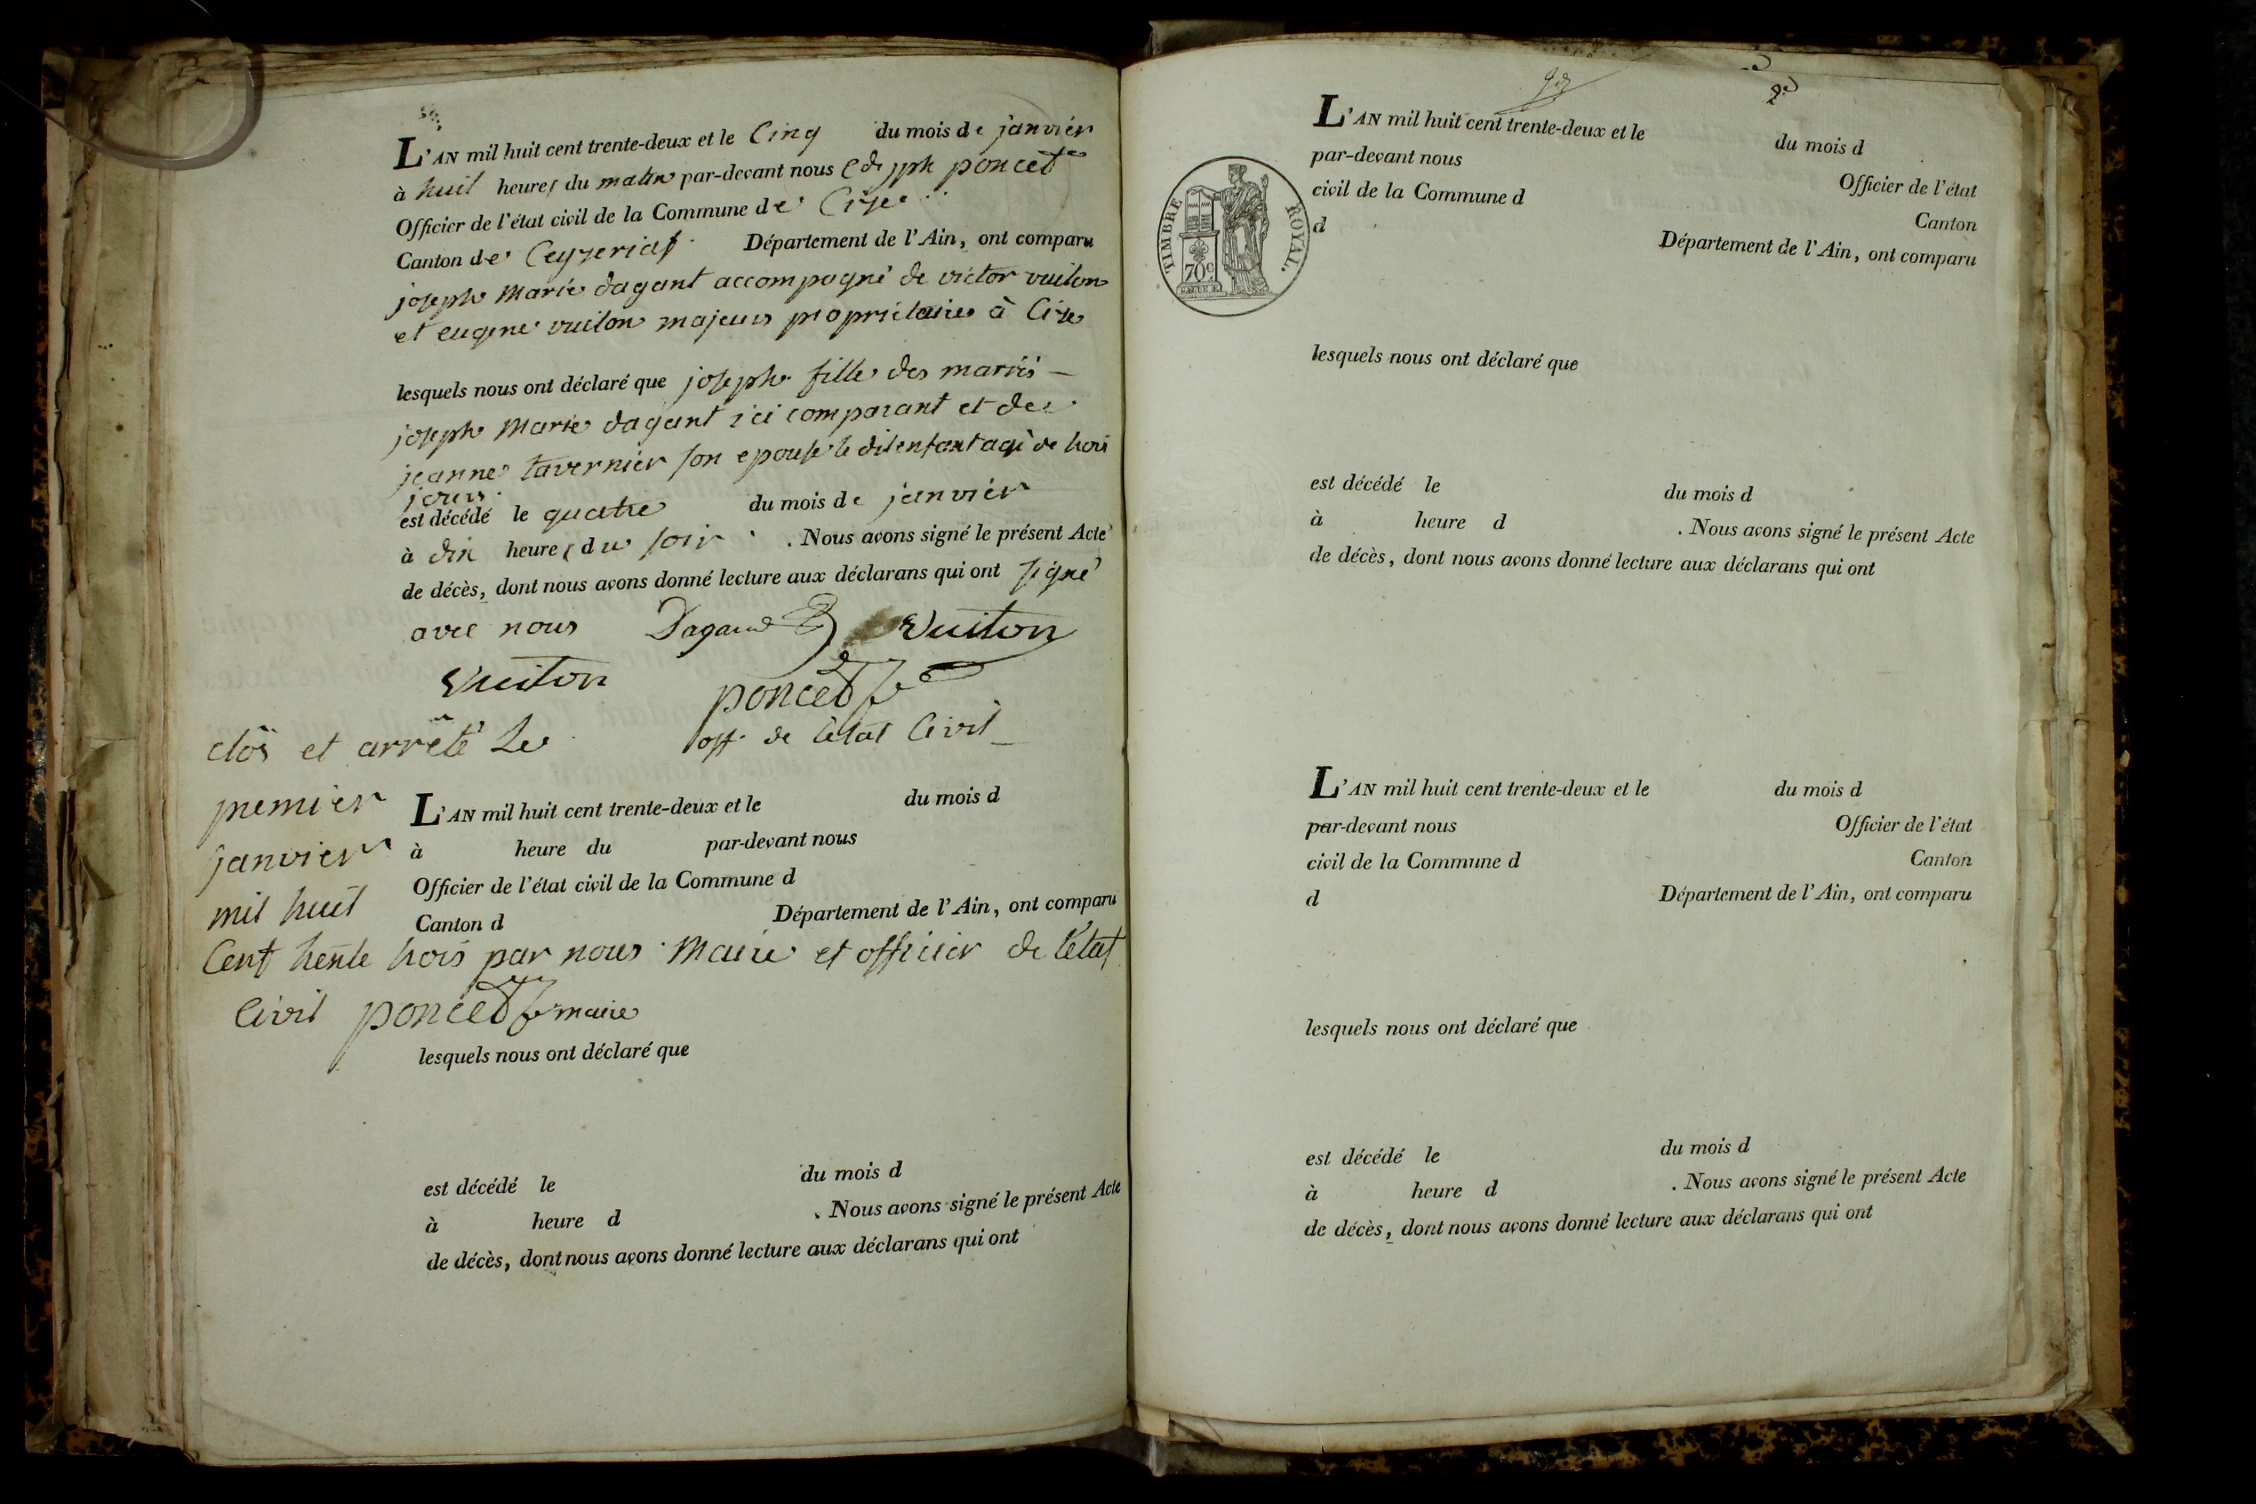 L'AN mil huit cent trente-deux et le Cinq du mois de janvier
à huit heures du matin par-devant nous Cde jph poncet
Officier de l'état civil de la Commune de Cize
Canton de Ceyzeriat Département de l'Ain, ont comparu
joseph Marie dagant accompagné de victor vuiton
et eugene vuiton majeurs propriétaires à Cize
lesquels nous ont déclaré que joseph fille des mariés
joseph Marie dagant ici comparant et de
jeanne tavernier son epouse le dit enfant agé de trois
jours
est décédé le quatre du mois de janvier
à dix heures du soir . Nous avons signé le présent Acte
de décès, dont nous avons donné lecture aux déclarans qui ont signé
avec nous Dagand Vuiton
Vuiton poncet
off. de l'état Civil
clos et arrêté Le
premier
janvier
mil huit
Cent trente trois par nous Maire et officier de l'état
Civil poncet maire
L'AN mil huit cent trente-deux et le du mois d
à heure du par-devant nous
Officier de l'état civil de la Commune d
Canton d Département de l'Ain, ont comparu
lesquels nous ont déclaré que
est décédé le du mois d
à heure d . Nous avons signé le présent Acte
de décès, dont nous avons donné lecture aux déclarans qui ont
TIMBRE ROYAL.
70c
L'AN mil huit cent trente-deux et le du mois d
par-devant nous Officier de l'état
civil de la Commune d Canton
d Département de l'Ain, ont comparu
lesquels nous ont déclaré que
est décédé le du mois d
à heure d . Nous avons signé le présent Acte
de décès, dont nous avons donné lecture aux déclarans qui ont
L'AN mil huit cent trente-deux et le du mois d
par-devant nous Officier de l'état
civil de la Commune d Canton
d Département de l'Ain, ont comparu
lesquels nous ont déclaré que
est décédé le du mois d
à heure d . Nous avons signé le présent Acte
de décès, dont nous avons donné lecture aux déclarans qui ont